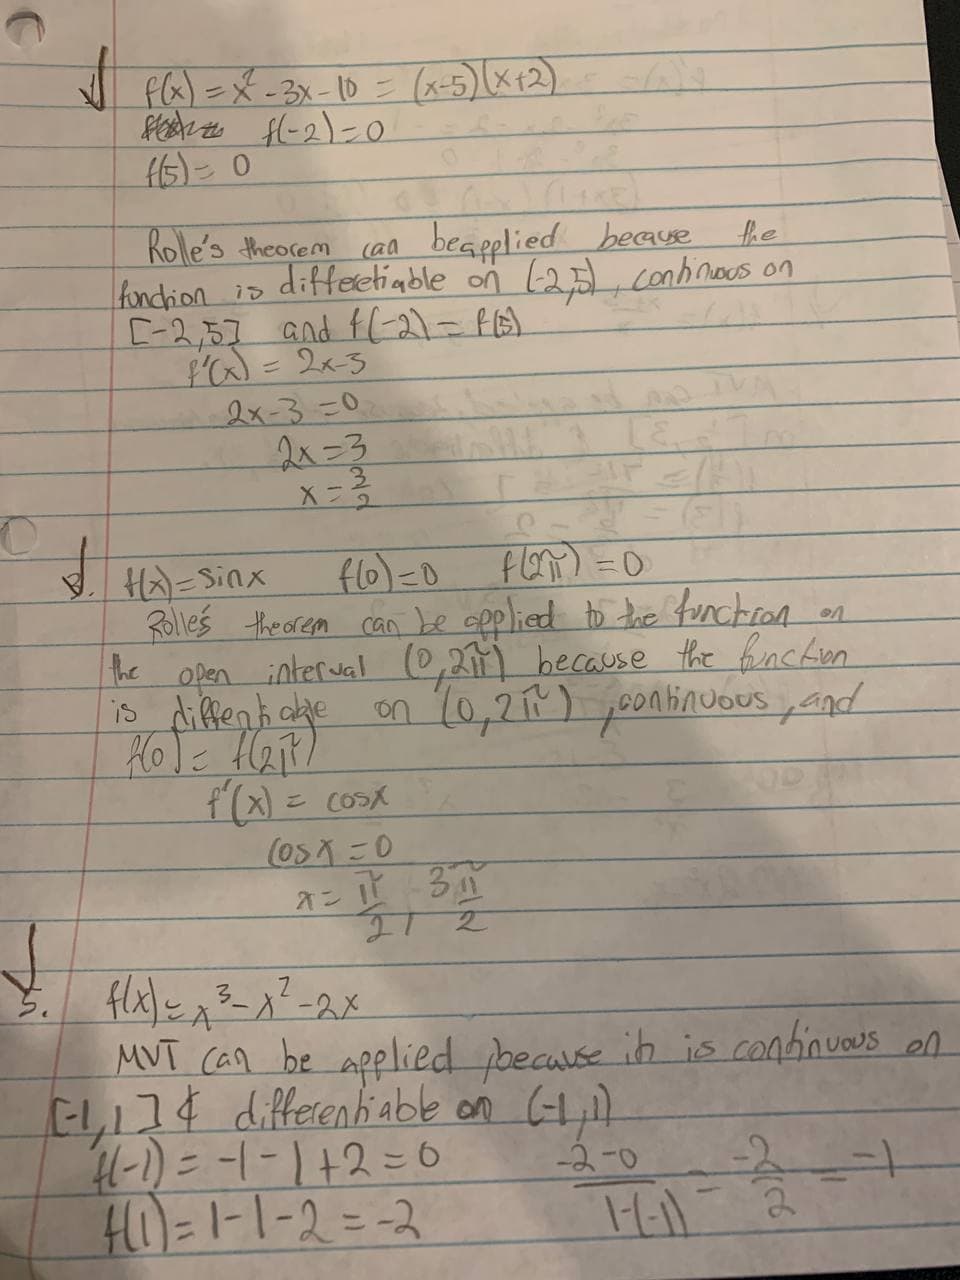 f(x) = x² - 3x - 10 = (x-5)(x+2)
f(-2) = 0
f(5) = 0
Rolle's theorem can be applied because the
function is differetiable on (-2,5), continuous on
[-2,5] and f(-2) = f(5)
f'(x) = 2x-3
2x-3 = 0
2x = 3
x = 3/2
f(x) = sin x f(0) = 0 f(2π) = 0
Rolle's theorem can be applied to the function on
the open interval (0, 2π) because the function
is diffentiable on (0, 2π), continuous, and
f(0) = f(2π)
f'(x) = cosx
cosx = 0
x = π/2, 3π/2
5. f(x) = x³ - x² - 2x
MVT can be applied, because it is continuous on
[-1, 1] & differentiable on (-1, 1)
f(-1) = -1 - 1 + 2 = 0 -2-0/1-(-1) = -2/2 = -1
f(1) = 1 - 1 - 2 = -2